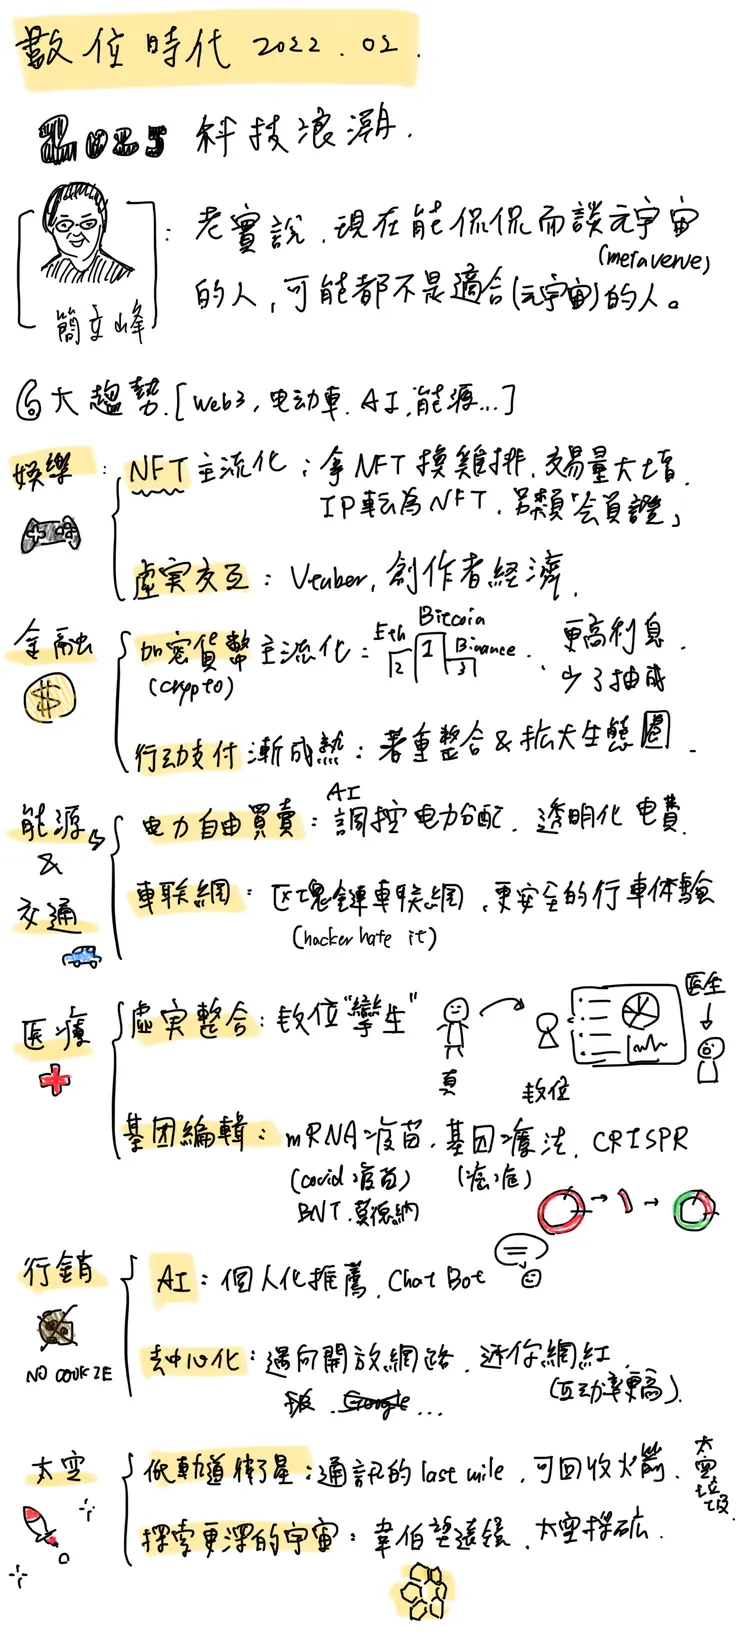 數位時代 2022.02.
2025 科技浪潮.
老實說,現在能侃侃而談元宇宙
(metaverve)
的人,可能都不是適合(元宇宙)的人。
簡立峰
6大趨勢.[Web3,电动車.AI,能源...]
娛樂:
NFT主流化:拿NFT換雞排.交易量大增.
IP転為NFT.另類「会員證」
虛実交互:Vtuber,創作者經濟.
金融
加密貨幣主流化:
(crypto)
Eth 2 Bitcoin 1 Binance 3
更高利息.
少了抽成
行动支付漸成熟:著重整合&拡大生態圈.
能源
&
交通
电力自由買賣:AI調控电力分配.透明化电費.
車联網:区塊鏈車联網,更安全的行車体驗
(hacker hate it)
医療
虛実整合:数位"孿生"
真
数位
医生
基因編輯:mRNA疫苗.基因療法.CRISPR
(covid疫苗)
BNT.莫德納
行銷
NO COOKIE
AI:個人化推薦.Chat Bot
去中心化:邁向開放網路.迷你網紅
(互动率更高).
Google ...
太空
低軌道衛星:通訊的last mile,可回收火箭.太空垃圾.
探索更深的宇宙:韋伯望遠鏡.太空採矿.